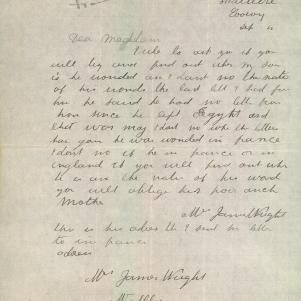 Ebony
Sep
Dear Madam
I rite to ask you if you
will try and find out where my son
is he wonded and I dont no the nater
of his wonds the last letter I had from
him he said he had no letter from
home since he left Egypt and
that was may I dont no where the letters
has gon he was wonded in france
I dont no if he in france or in
england if you will find out where
he is and the nater of his wond
you will oblige his poor
Mother
Mrs James Wright
this is his adres th I sent his letter
to in france
adress
Mrs James Wright